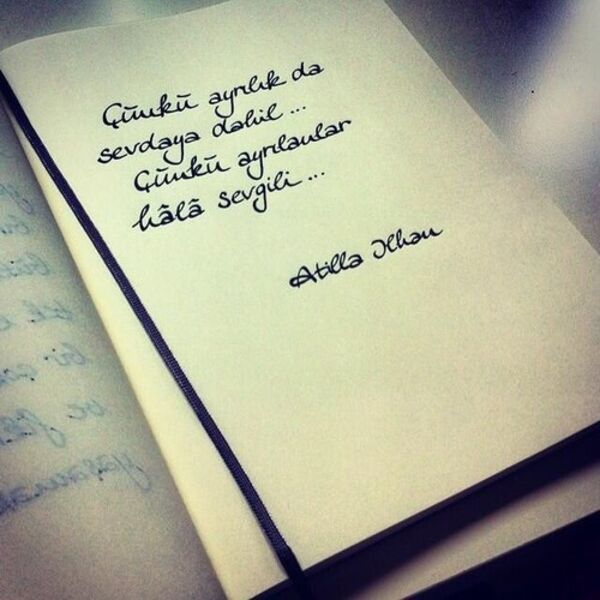 Çünkü ayrılık da
sevdaya dahil...
Çünkü ayrılanlar
hâlâ sevgili...
Atilla İlhan